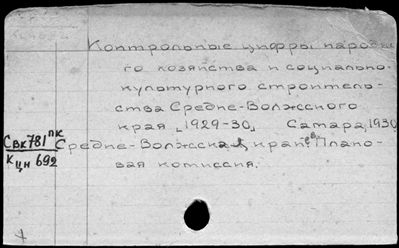 Контрольные цифры народно-
го хозяйства и социально-
культурного строитель-
ства Средне-Волжского
края [1929-30] Самара, 1930
Свк781 пк
Кцн 692
Средне-Волжская край Плано-
вая комиссия.